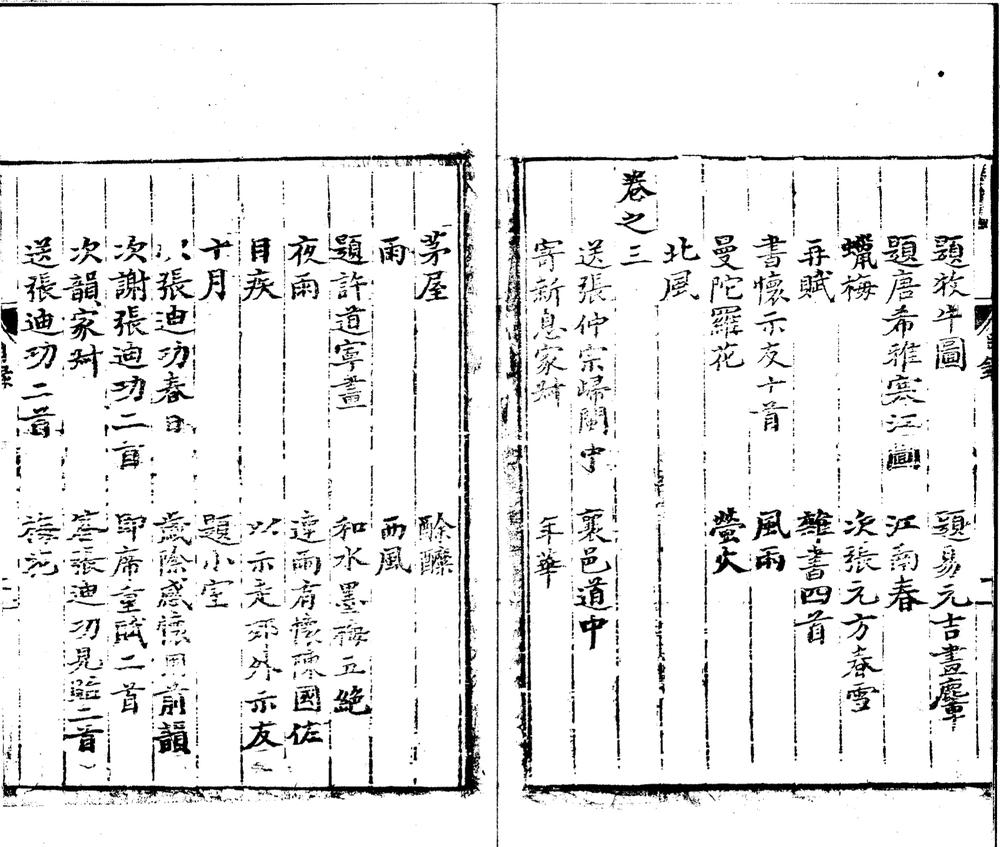 題牧牛圖　題易元吉畫麞
題唐希雅寒江圖　江南春
蠟梅　次張元方春雪
再賦　雜書四首
書懷示友十首　風雨
曼陀羅花　螢火
北風
卷之三
送張仲宗歸閩中　襄邑道中
寄新息家叔　年華
茅屋　酴醾
雨　西風
題許道寧畫　和水墨梅五絶
夜雨　連雨有懷陳國佐
目疾　以示友
十月　題小室
張迪功春日　歲陰感懷用前韻
次謝張迪功二首　即席重賦二首
次韻家叔　答張迪功見貽二首
送張迪功二首　梅花
目錄